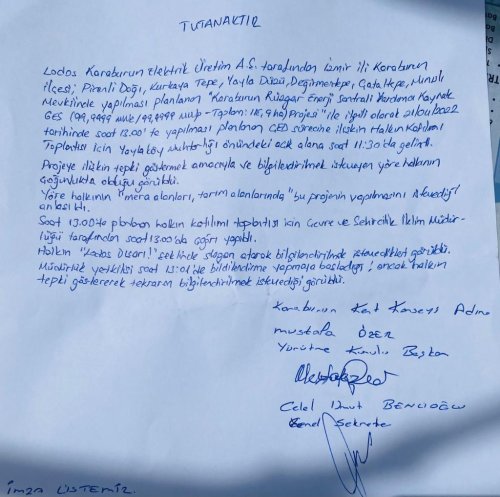 TUTANAKTIR
Lodos Karaburun Elektrik Üretim A.Ş. tarafından İzmir ili Karaburun
ilçesi, Pirenli Dağı, Kurkaya Tepe, Yayla Düzü, Değirmentepe, Çataltepe,
Mevkiinde yapılması planlanan "Karaburun Rüzgar Enerji Santrali Yardımcı Kaynak
GES ile ilgili olarak 21/01/2022
tarihinde saat 13.00'te yapılması planlanan ÇED sürecine ilişkin Halkın Katılımı
Toplantısı için Yaylaköy Muhtarlığı önündeki açık alana saat 11:30'da gelindi.
Projeye ilişkin tepki göstermek amacıyla ve bilgilendirilmek istemeyen yöre halkının
çoğunlukta olduğu görüldü.
Yöre halkının "mera alanları, tarım alanlarında" bu projenin yapılmasını istemediği
anlaşıldı.
Saat 13.00'te planlanan halkın katılımı toplantısı için Çevre ve Şehircilik İklim Müdür-
lüğü tarafından saat 13.00'da çağrı yapıldı.
Halkın "Lodos Dışarı!" şeklinde slogan atarak bilgilendirilmek istemedikleri görüldü.
Müdürlük yetkilisi saat 13:01'de bildilendirme yapmaya başladığı; ancak halkın
tepki göstererek tekraren bilgilendirilmek istemediği görüldü.
Karaburun Kent Konseyi Adına
Mustafa ÖZER
Yürütme Kurulu Başkan
Celal Umut BENLİOĞLU
Genel Sekreter
İMZA LİSTEMİZ.